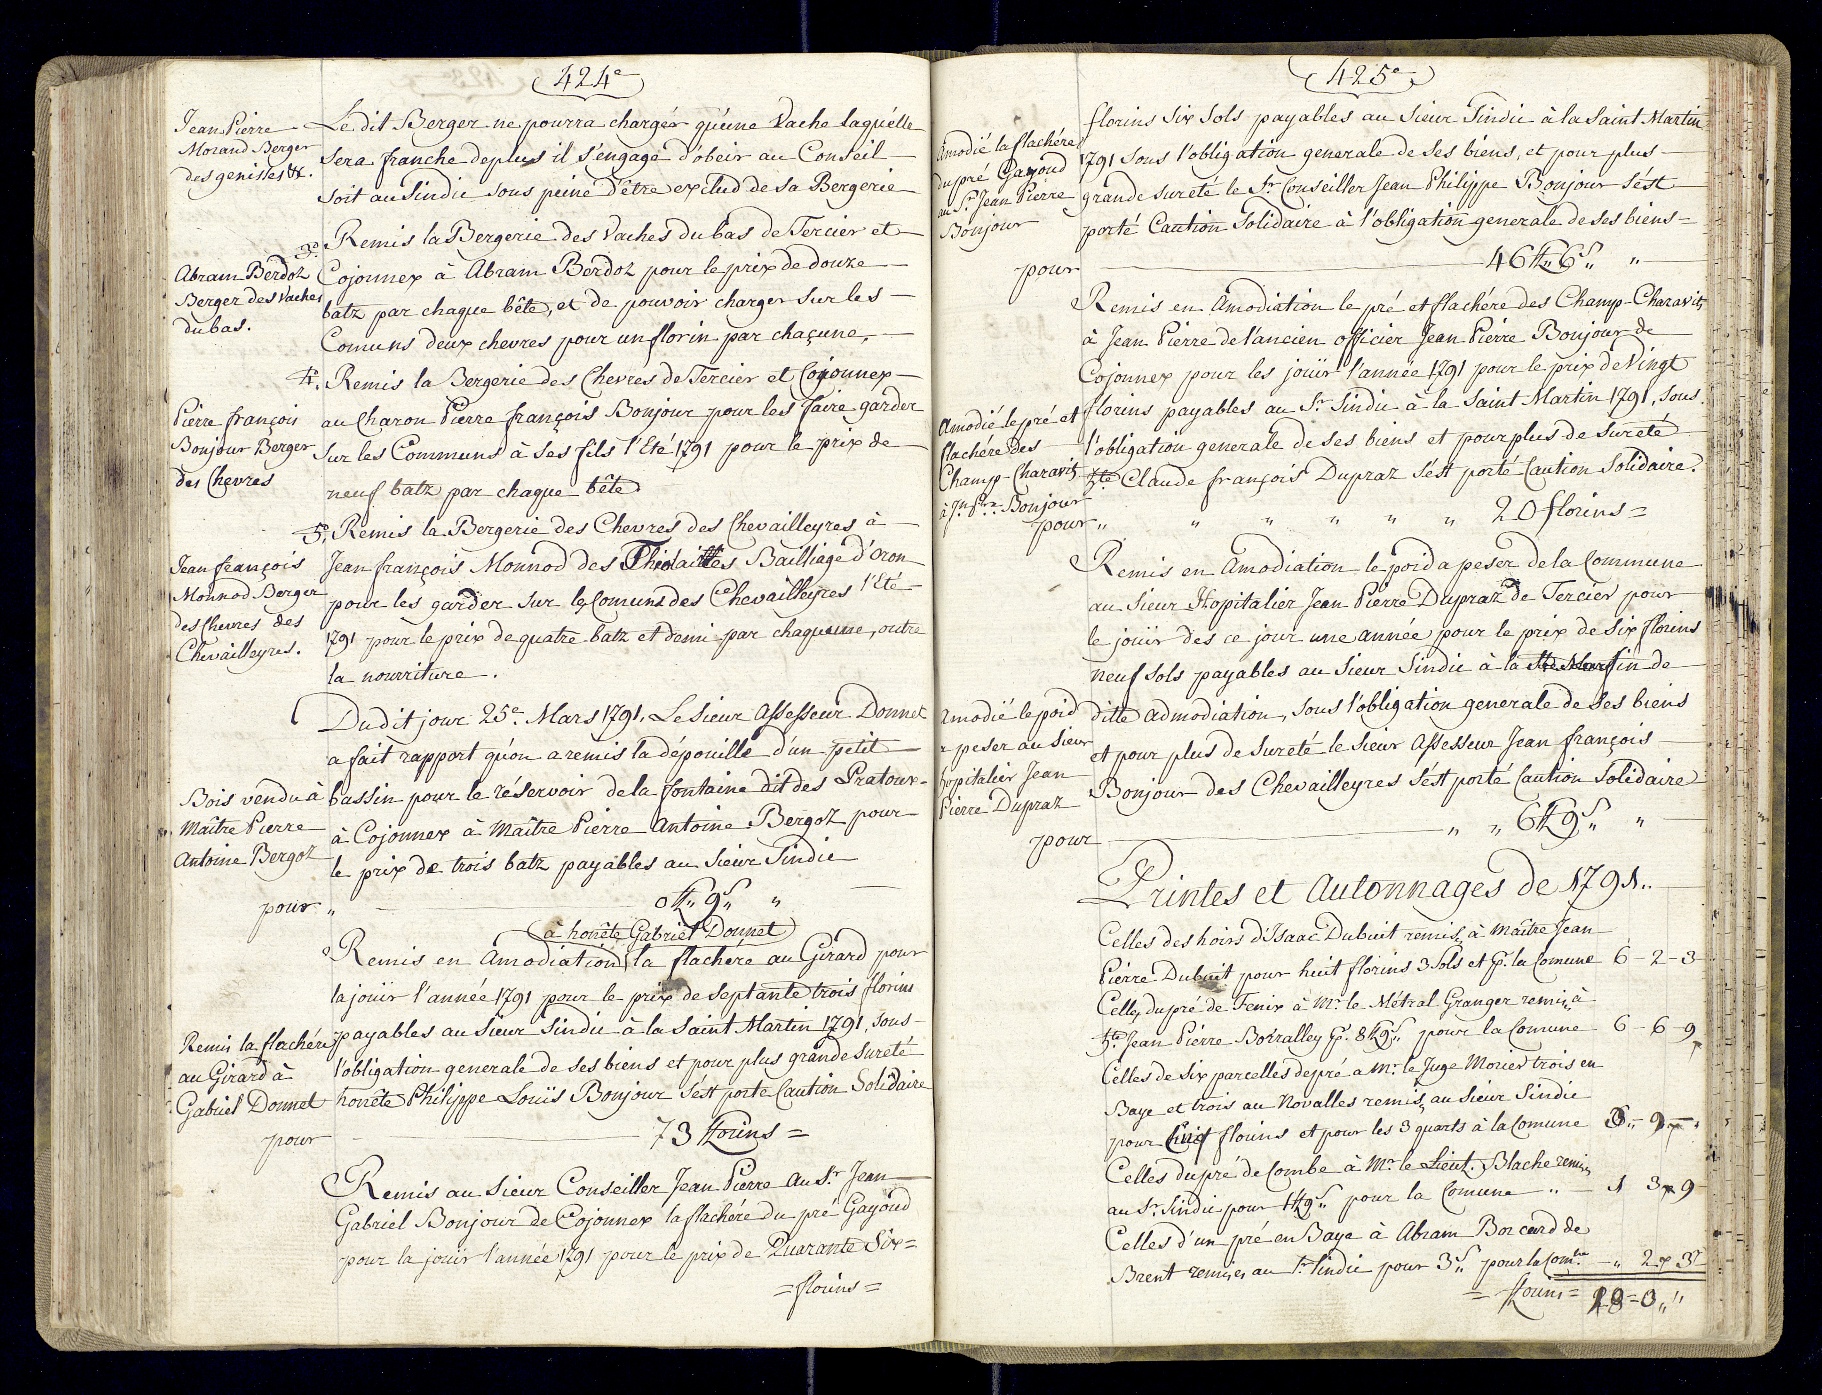 424e
Jean Pierre
Morand Berger
des genisses &c.
Le dit Berger ne pourra chargér qu'une Vache laquélle
sera franche deplus il s'engage d'obeir au Conseil
soit au Sindic sous peine d'être exclud de sa Bergerie
3e
Remis la Bergerie des Vaches du bas de Tercier et
Abram Berdoz
Berger des Vaches
du bas.
Cojonnex à Abram Berdoz pour le prix de douze
batz par chaque bête, et de pouvoir charger sur les
Comuns deux chevres pour un florin par chaçune,
4e. Remis la Bergerie des Chevres de Tercier et Cojonnex
Pierre françois
Bonjour Berger
des Chevres
au Charon Pierre françois Bonjour pour les faire garder
sur les Communs à ses fils l'Eté 1791 pour le prix de
neuf batz par chaque bête
5e. Remis la Bergerie des Chevres des Chevailleyres à
Jean françois
Monnod Berger
des Chevres des
Chevailleyres.
Jean françois Monnod des Thiolaittes Bailliage d'Oron
pour les garder sur les Comuns des Chevailleyres l'Eté
1791 pour le prix de quatre batz et demi par chaqueune, outre
la nourriture.
Dudit jour 25e. Mars 1791. Le Sieur Assesseur Donnet
a fait rapport qu'on a remis la dépouille d'un petit
Bois vendu à
Maître Pierre
Antoine Bergoz
pour
bassin pour le réservoir de la fontaine dit des Pratoux
à Cojonnex à Maître Pierre Antoine Bergoz pour
le prix de trois batz payables au Sieur Sindic
0 fl,, 9 s,, ,,
à honête Gabriel Donnet
Remis en Amodiation la flachere au Girard pour
la jouïr l'année 1791 pour le prix de Septante trois florins
Remis la flachére
au Girard à
Gabriel Donnet
pour
payables au Sieur Sindic à la Saint Martin 1791, sous
l'obligation generale de ses biens et pour plus grande sureté
honête Philippe Louïs Bonjour s'ést porté Caution Solidaire
73 florins =
Remis au Sieur Conseiller Jean Pierre au Sr. Jean
Gabriel Bonjour de Cojonnex la flachére du pré Gayoud
pour la jouïr l'année 1791 pour le prix de Quarante Six=
= florins =
425e
florins Six Sols payables au Sieur Sindic à la Saint Martin
Amodié la flachére
du pré Gayoud
au Sr. Jean Pierre
Bonjour
pour
1791 sous l'obligation generale de ses biens, et pour plus
grande sureté le Sr. Conseiller Jean Philippe Bonjour s'ést
porté Caution Solidaire à l'obligation generale de ses biens =
46 fl,, 6 s,, ,,
Remis en Amodiation le pré et flachére des Champ-Charavit,
à Jean Pierre de l'ancien officier Jean Pierre Bonjour de
Cojonnex pour les jouïr l'année 1791 pour le prix de Vingt
Amodié le pré et
flachére des
Champ-Charavit,
à Jn. Prre. Bonjour
pour
florins payables au Sr. Sindic à la Saint Martin 1791, Sous
l'obligation generale de ses biens et pour plus de sureté
hte. Claude françois Dupraz s'ést porté Caution Solidaire.
,, ,, ,, ,, ,, ,, 20 florins =
Remis en Amodiation le poid a peser de la Commune
au Sieur Hopitalier Jean Pierre Dupraz de Tercier pour
le jouïr dès ce jour une année pour le prix de six florins
neuf Sols payables au Sieur Sindic à la fin de
Amodié le poid
a peser au sieur
hopitalier Jean
Pierre Dupraz
pour
ditte admodiation, sous l'obligation generale de ses biens
et pour plus de sureté le Sieur Assesseur Jean françois
Bonjour des Chevailleyres s'ést porté Caution Solidaire
,, ,, 6 fl 9 s,, ,,
Printes et Autonnages de 1791..
Celles des hoirs d'Isaac Dubuit remis, à Maître Jean
Pierre Dubuit pour huit florins 3 sols et p. la Comune 6 - 2 - 3
Celles du pré de Fenix à Mr. le Métral Granger remis, à
hte. Jean Pierre Borralley p. 8 fl 9 s,, pour la Comune 6 - 6 - 9
Celles de six parcelles de pré a Mr. le Juge Morier trois en
Baye et trois au Novalles remis, au Sieur Sindic
pour florins et pour les 3 quarts à la Comune
Celles du pré de Combe à Mr. le Lieut. Blache remis,
au Sr. Sindic pour 1 fl 9 s,, pour la Comune ,, 1 3 9
Celles d'un pré en Baye à Abram Borcard de
Brent remises au Sr. Sindic pour 3 s,, pour la Comne. - ,, 2 3
= florins = 18 - 0 ,, ,,